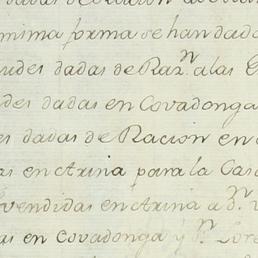 dadas de Racion
mima forma se han dado
dadas de Raz.n a las
des dadas en Covadonga
es dadas de Racion en
as en Arina para la Cas
vendidas en Arina a D.n
as en Covadonga y D.n Lore